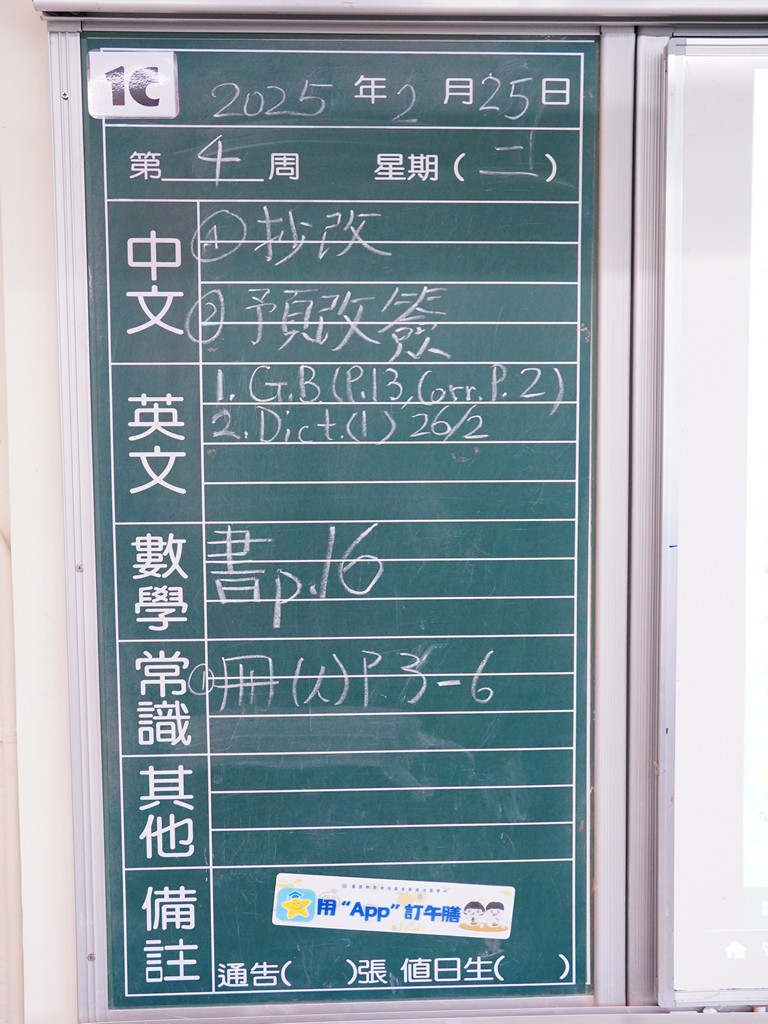 1C
2025年2月25日
第4周 星期(二)
中文
① 抄改
② 預改簽
英文
1. G.B.(P.13, Corr. P.2)
2. Dict.(1) 26/2
數學
書p.16
常識
① 冊(八)P.3-6
其他
備註
用“App”訂午膳
通告( )張 值日生( )